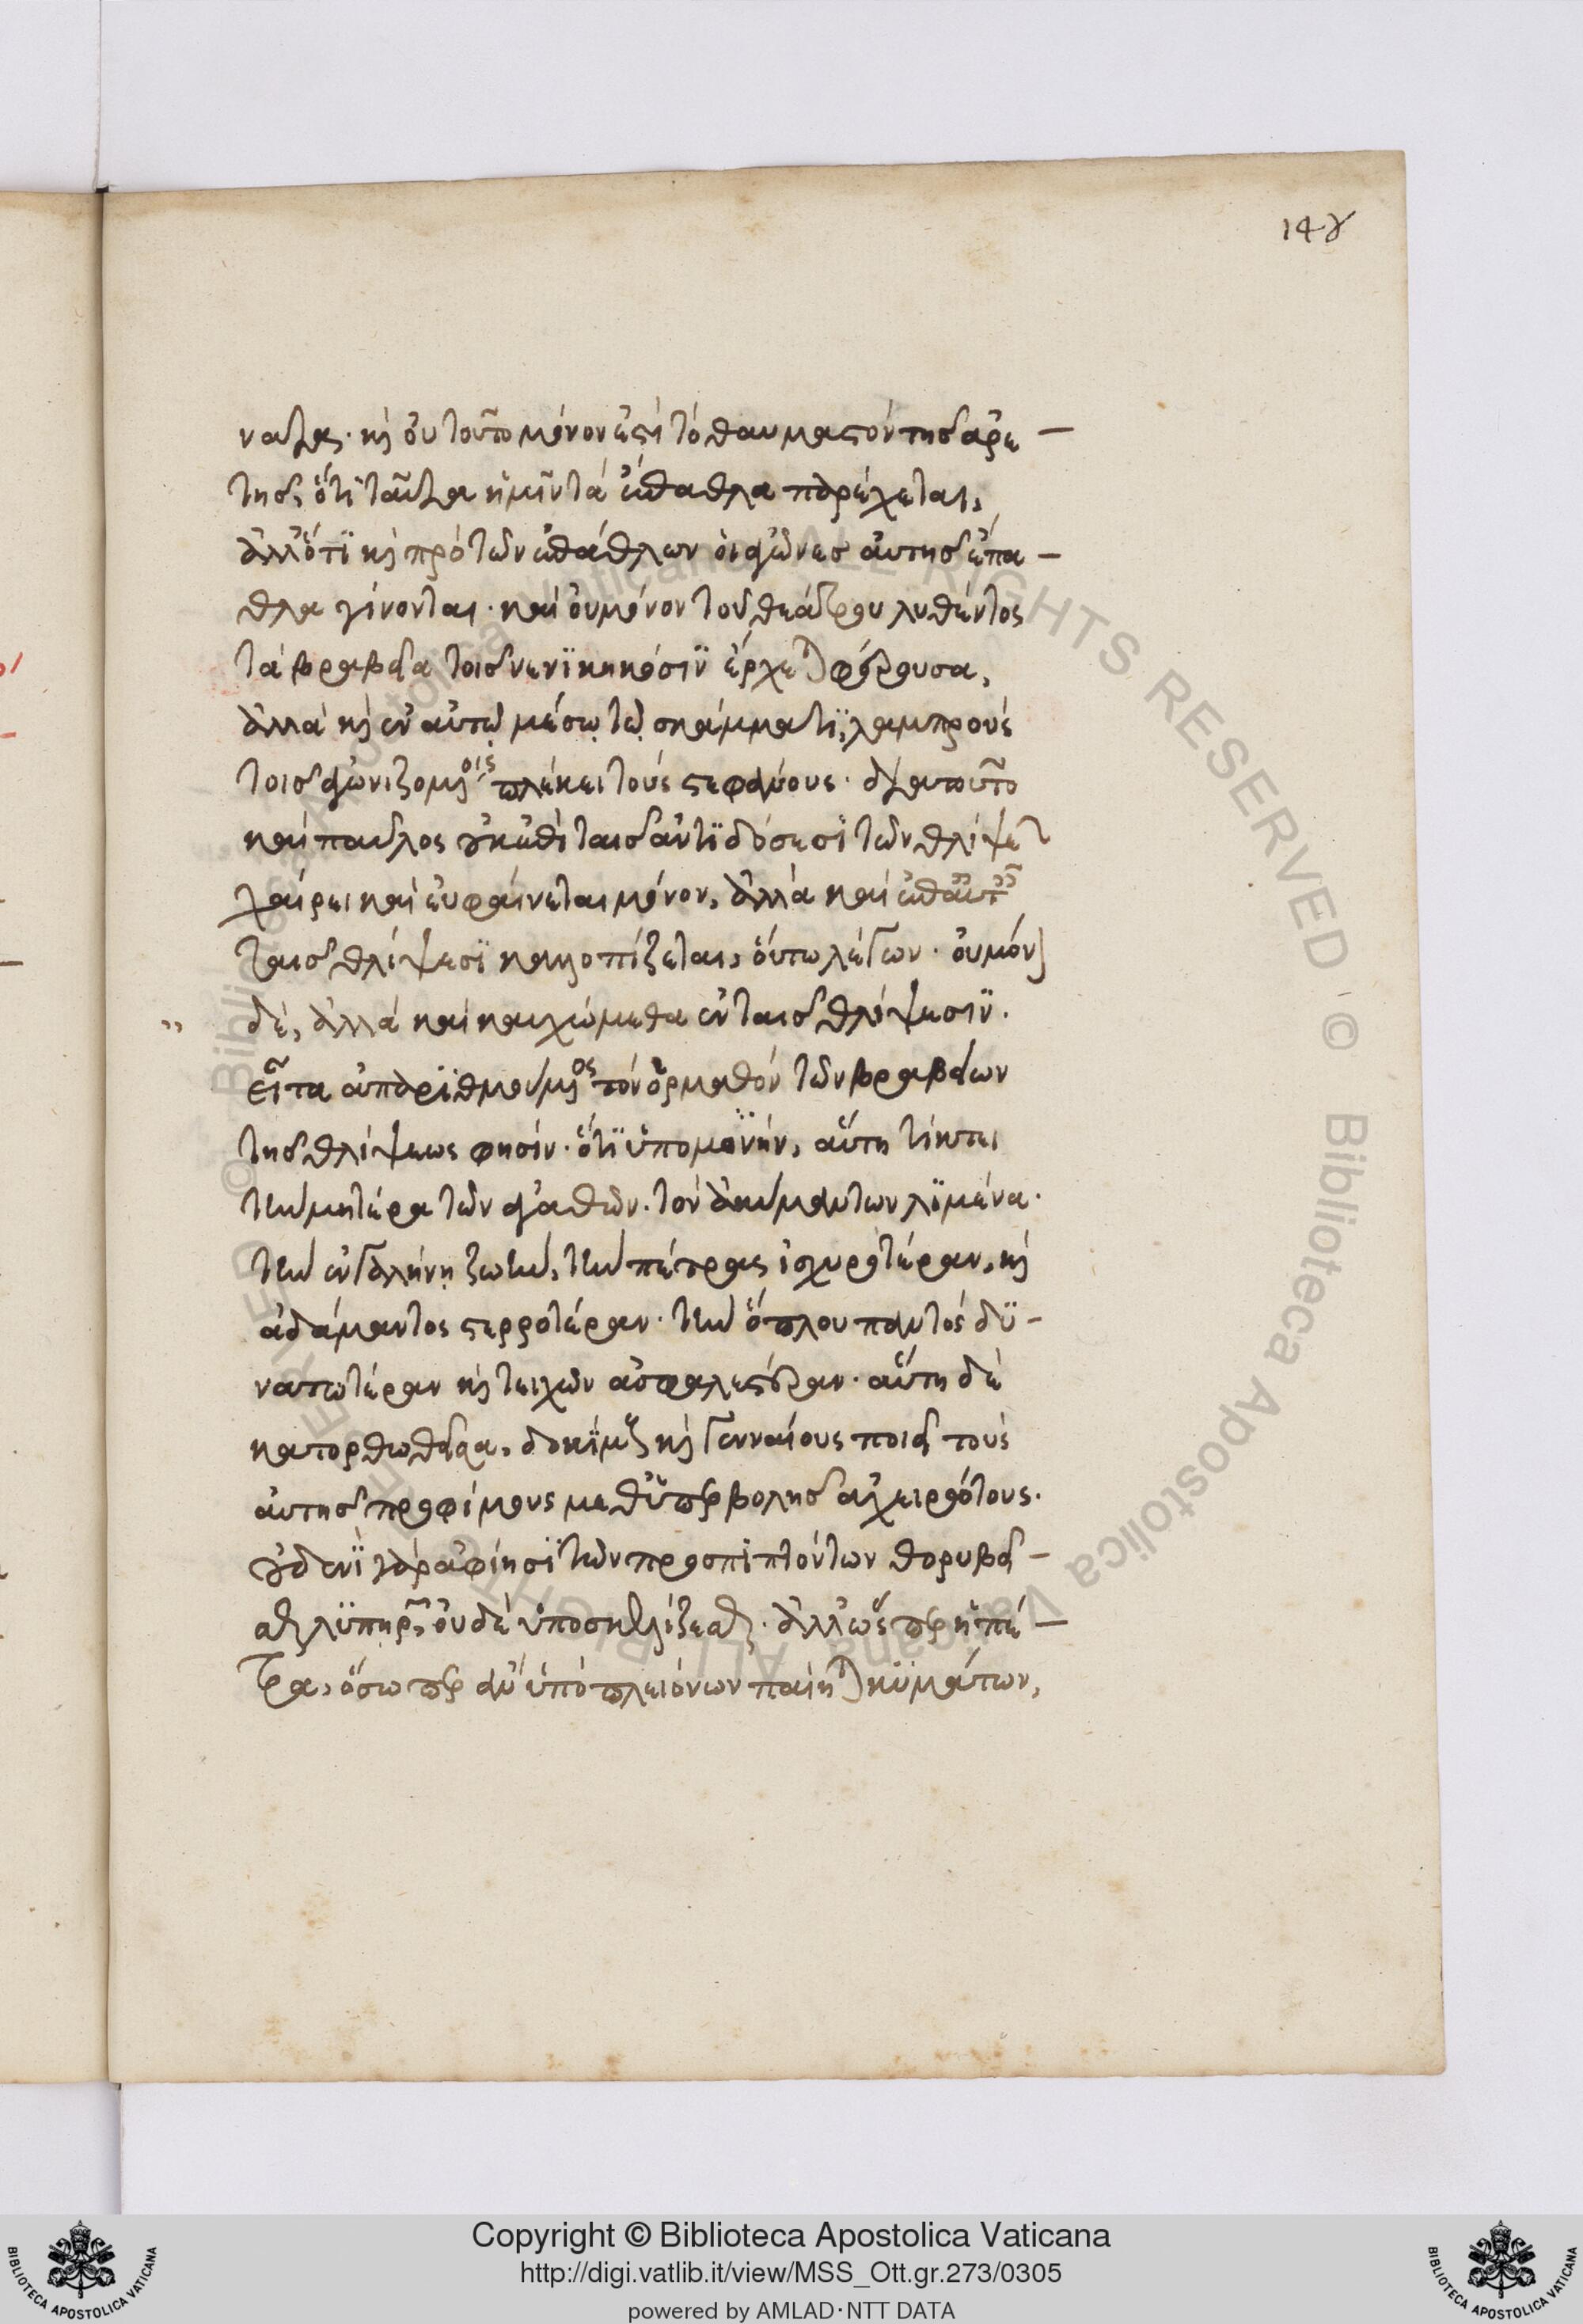 148
ναῦται· καὶ οὐ τοῦτο μόνον ἐστὶ τὸ θαυμαστὸν τῆς ἀρε
τῆς, ὅτι ταῦτα ἡμῖν τὰ ἔπαθλα παρέχεται,
ἀλλ' ὅτι καὶ πρὸ τῶν ἐπάθλων οἱ ἀγῶνες αὐτῆς ἔπα
θλα γίνονται· καὶ οὐ μόνον τοῦ θεάτρου λυθέντος
τὰ βραβεῖα τοῖς νενικηκόσιν ἔρχεται φέρουσα,
ἀλλὰ καὶ ἐν αὐτῷ μέσῳ τῷ σκάμματι, λαμπροὺς
τοῖς ἀγωνιζομένοις πλέκει τοὺς στεφάνους· διὰ τοῦτο
καὶ παῦλος οὐκ ἐπὶ ταῖς ἀντιδόσεσι τῶν θλίψεων
χαίρει καὶ εὐφραίνεται μόνον, ἀλλὰ καὶ ἐπ' αὐταῖς
ταῖς θλίψεσι καλλωπίζεται, οὕτω λέγων· οὐ μόνον
δὲ, ἀλλὰ καὶ καυχώμεθα ἐν ταῖς θλίψεσιν.
εἶτα ἀπαριθμούμενος τὸν ὁρμαθὸν τῶν βραβείων
τῆς θλίψεως φησίν· ὅτι ὑπομονὴν, αὕτη τίκτει
τὴν μητέρα τῶν ἀγαθῶν· τὸν ἀκύμαντον λιμένα·
τὴν ἐν γαλήνῃ ζωὴν, τὴν πέτρας ἰσχυροτέραν, καὶ
ἀδάμαντος στερροτέραν· τὴν ὅπλου παντὸς δυ
νατωτέραν καὶ τειχῶν ἀσφαλεστέραν· αὕτη δὲ
κατορθωθεῖσα, δοκίμους καὶ γενναίους ποιεῖ τοὺς
αὐτῆς τροφίμους μεθ' ὑπερβολῆς ἀχειρώτους·
οὐδενὶ γὰρ ἀφίησι τῶν προσπιπτόντων θορυβεῖ
σθαι λυπηρῶν, οὐδὲ ὑποσκελίζεσθαι· ἀλλ' ὥσπερ ἡ πέ
τρα, ὅσωπερ ἂν ὑπὸ πλειόνων παίηται κυμάτων,
Copyright © Biblioteca Apostolica Vaticana
http://digi.vatlib.it/view/MSS_Ott.gr.273/0305
powered by AMLAD·NTT DATA